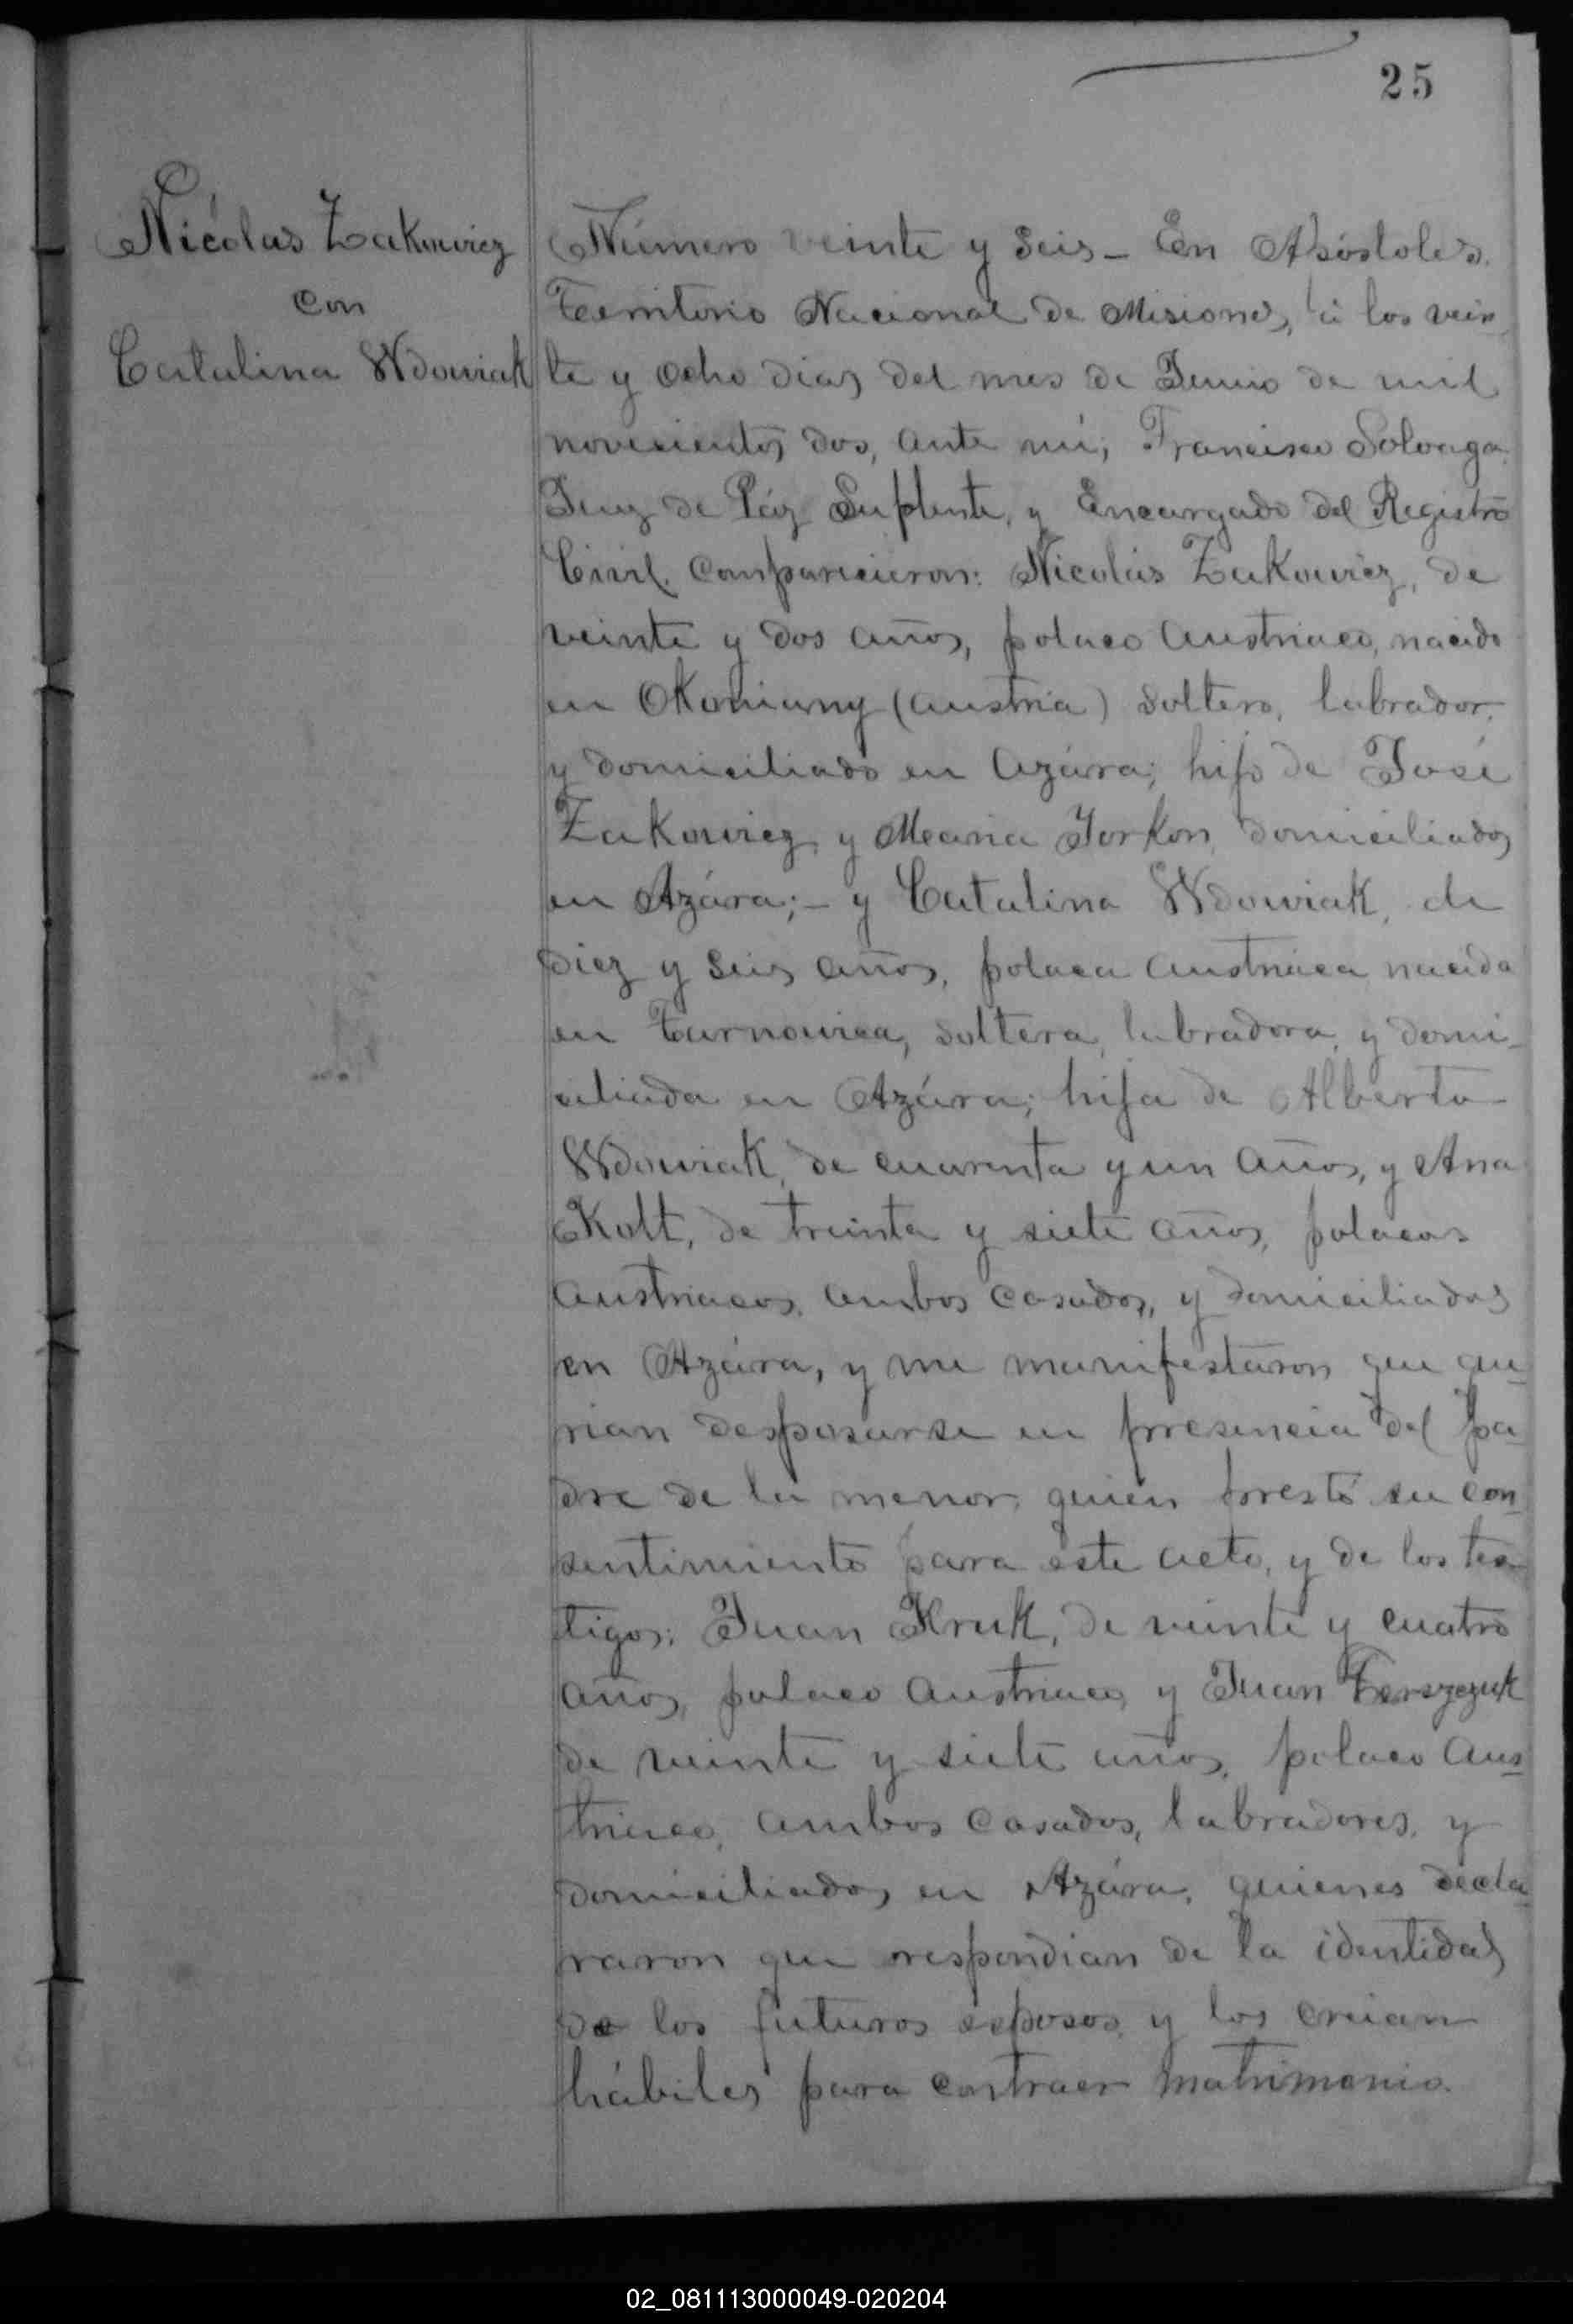 25
Nicolas Zakowicz
con
Catalina Wdowiak
Número veinte y seis - En Apóstoles,
Territorio Nacional de Misiones, á los vein
te y ocho dias del mes de Junio de mil
novecientos dos, ante mí, Francisco Soloaga
Juez de Páz Suplente, y Encargado del Registro
Civil, comparecieron: Nicolás Zakowicz, de
veinte y dos años, polaco austriaco, nacido
en (Austria) soltero, labrador,
y domiciliado en Azára; hijo de José
Zakowicz y Maria Jorkon, domiciliados
en Azára; - y Catalina Wdowiak, de
diez y seis años, polaca austriaca nacida
en Tarnowica, soltera, labradora, y domi-
ciliada en Azára; hija de Alberto
Wdowiak, de cuarenta y un años, y Ana
Kolt, de treinta y siete años, polacos
austriacos, ambos casados, y domiciliados
en Azára, y me manifestaron que que
rian desposarse en presencia del pa
dre de la menor, quién prestó su con
sentimiento para este acto, y de los tes
tigos: Juan Kruk, de veinte y cuatro
años, polaco austriaco, y Juan
de veinte y siete años, polaco aus
triaco, ambos casados, labradores, y
domiciliados en Azára, quienes decla
raron que respondian de la identidad
de los futuros esposos y los creian
hábiles para contraer matrimonio.
02_081113000049-020204